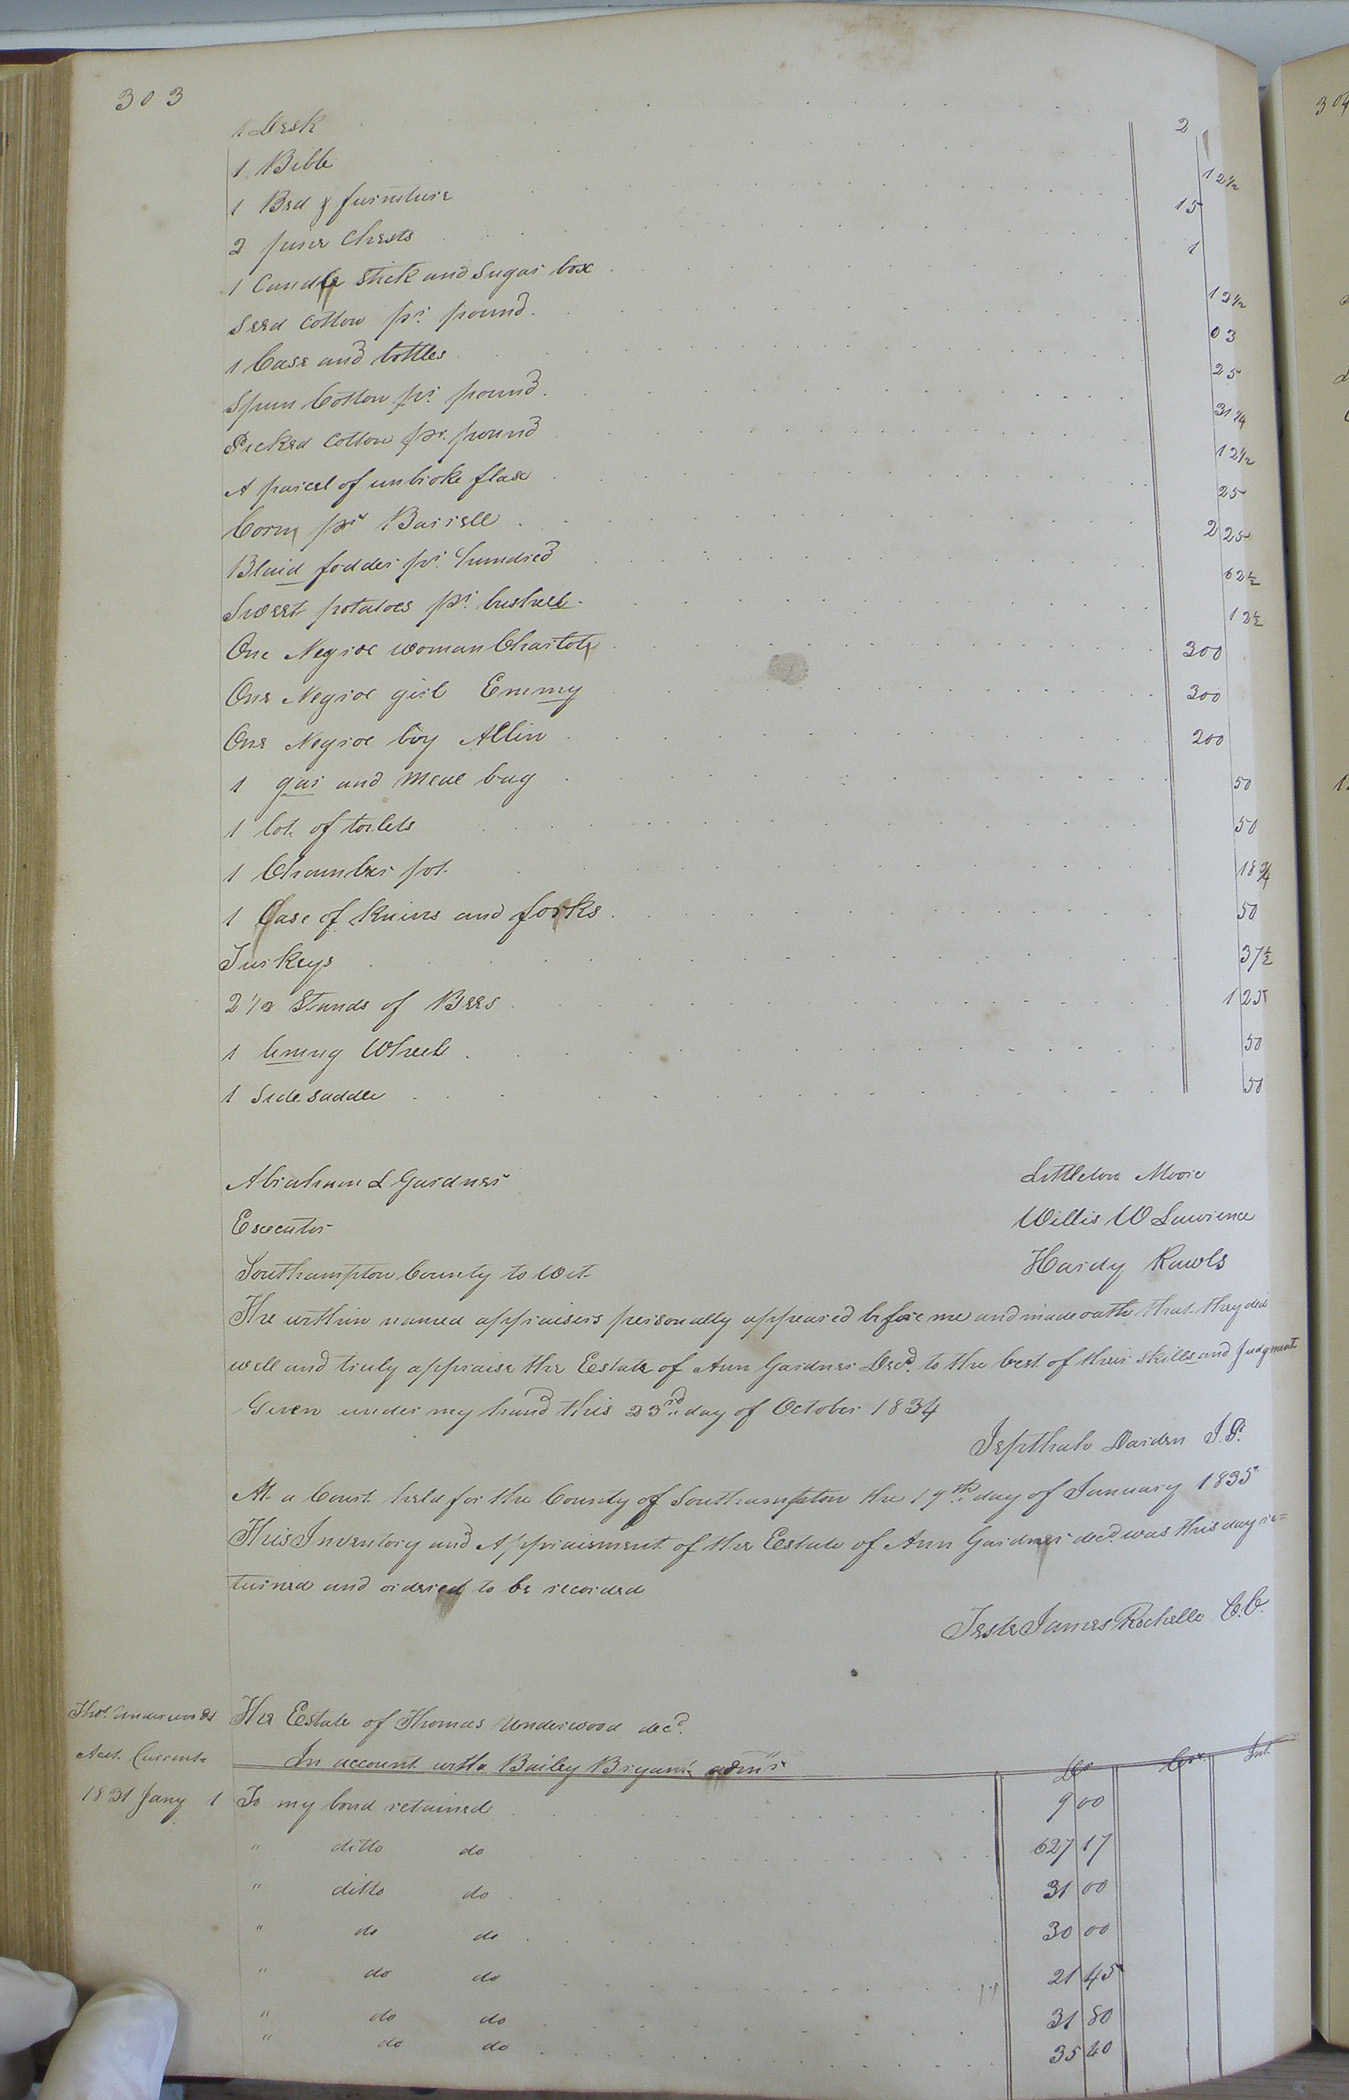 303
1 Desk 2
1 Bible 12½
1 Bed & furniture 15
2 pine Chests 1
1 Candle Stick and Sugar box 12½
Seed Cotton pr. pound. 03
1 Case and bottles 25
Spun Cotton pr. pound. 31¼
Picked Cotton pr. pound 12½
A parcel of unbroke flax 25
Corn pr Barrell 2 25
Blaid fodder pr. hundred 62½
Sweet potatoes pr. bushell 12½
One Negroe woman Charlote 300
One Negroe girl Emmy 300
One Negroe boy Allin 200
1 gar and Meal bag 50
1 lot of toilets 50
1 Chamber pot 18¾
1 Case of Knives and forks 50
Turkeys 37½
2 1/2 Stands of Bees 1 25
1 Wheel 50
1 Side saddle 50
Abraham L Gardner Littleton Moore
Executor Willis W Lawrence
Southampton County to Wit Hardy Rawls
The within named appraisers personally appeared before me and made oath that they did
well and truly appraise the Estate of Ann Gardner Decd. to the best of their skills and judgment
Given under my hand this 23rd day of October 1834
Jepthah Darden J.P.
At a Court held for the County of Southampton the 19th day of January 1835
This Inventory and Appraisment of the Estate of Ann Gardner decd. was this day re=
turned and ordered to be recorded
Teste James Rochelle C.C.
Thos. Underwoods The Estate of Thomas Underwood decd.
Acct. Current In account with Bailey Bryant admr Dr Cr. Int.
1831 Jany 1 To my bond retained 9 00
" ditto do 627 17
" ditto do 31 00
" do do 30 00
" do do 21 45
" do do 31 80
" do do 35 40
304